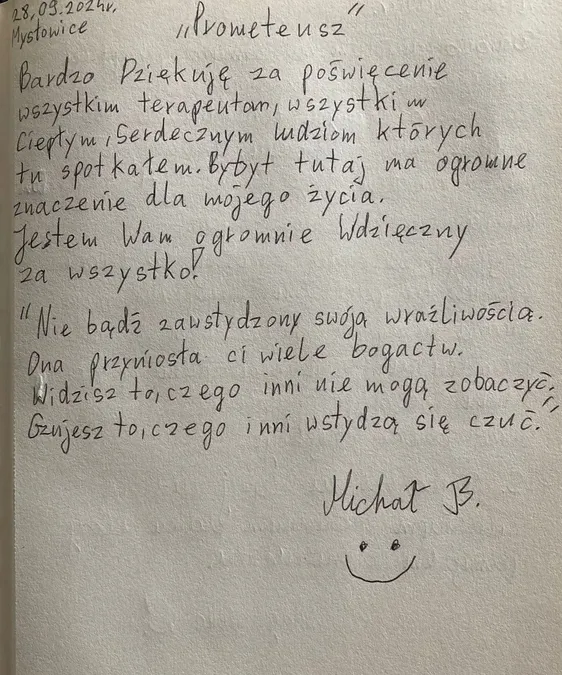 28,09.2024r.
Mysłowice
"Prometeusz"
Bardzo Dziękuję za poświęcenie
wszystkim terapeutom, wszystkim
Ciepłym, Serdecznym ludziom których
tu spotkałem. Bybyt tutaj ma ogromne
znaczenie dla mojego życia.
Jestem Wam ogromnie Wdzięczny
za wszystko!
"Nie bądź zawstydzony swoją wrażliwością.
Ona przyniosła ci wiele bogactw.
Widzisz to, czego inni nie mogą zobaczyć.
Czujesz to, czego inni wstydzą się czuć."
Michał B.